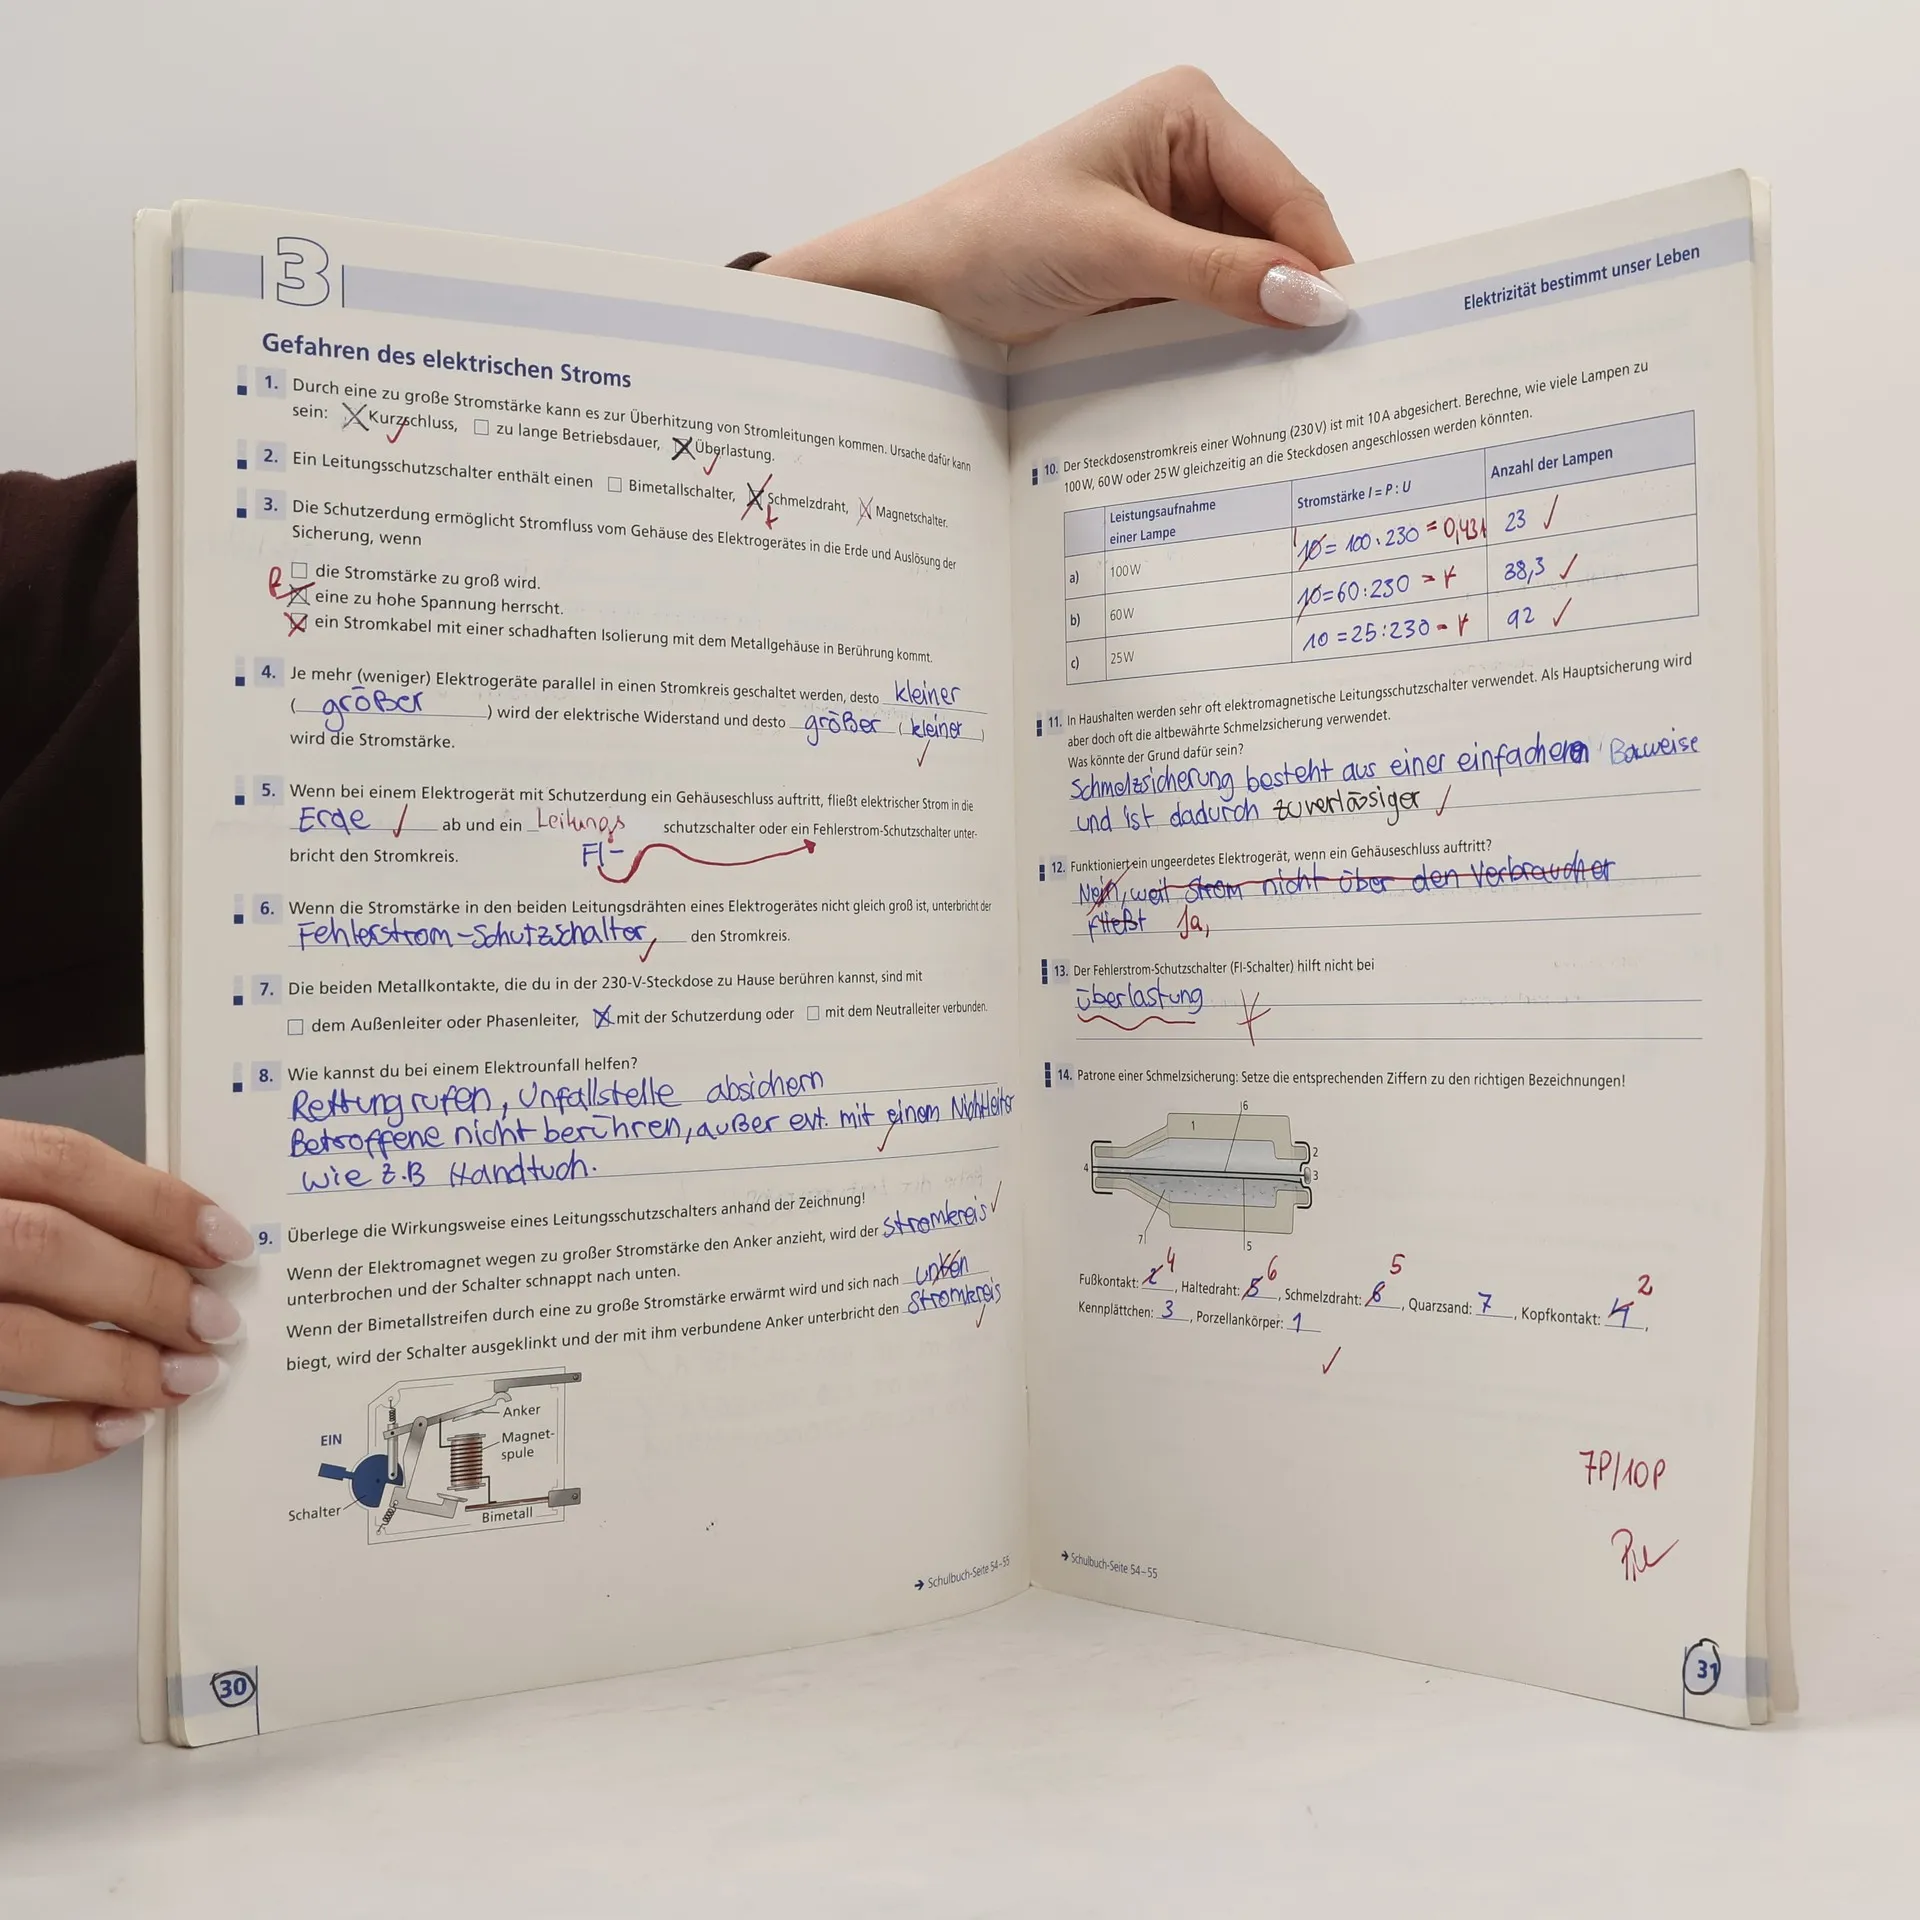 3
Gefahren des elektrischen Stroms
1. Durch eine zu große Stromstärke kann es zur Überhitzung von Stromleitungen kommen. Ursache dafür kann
sein: Kurzschluss, zu lange Betriebsdauer, Überlastung.
2. Ein Leitungsschutzschalter enthält einen Bimetallschalter, Schmelzdraht, Magnetschalter.
3. Die Schutzerdung ermöglicht Stromfluss vom Gehäuse des Elektrogerätes in die Erde und Auslösung der
Sicherung, wenn
die Stromstärke zu groß wird.
eine zu hohe Spannung herrscht.
ein Stromkabel mit einer schadhaften Isolierung mit dem Metallgehäuse in Berührung kommt.
4. Je mehr (weniger) Elektrogeräte parallel in einen Stromkreis geschaltet werden, desto kleiner
( größer ) wird der elektrische Widerstand und desto größer ( kleiner )
wird die Stromstärke.
5. Wenn bei einem Elektrogerät mit Schutzerdung ein Gehäuseschluss auftritt, fließt elektrischer Strom in die
Erde ab und ein Leitungs schutzschalter oder ein Fehlerstrom-Schutzschalter unter-
bricht den Stromkreis. FI-
6. Wenn die Stromstärke in den beiden Leitungsdrähten eines Elektrogerätes nicht gleich groß ist, unterbricht der
Fehlerstrom-Schutzschalter, den Stromkreis.
7. Die beiden Metallkontakte, die du in der 230-V-Steckdose zu Hause berühren kannst, sind mit
dem Außenleiter oder Phasenleiter, mit der Schutzerdung oder mit dem Neutralleiter verbunden.
8. Wie kannst du bei einem Elektrounfall helfen?
Rettung rufen, Unfallstelle absichern
Betroffene nicht berühren, außer evt. mit einem Nichtleiter
wie z.B Handtuch.
9. Überlege die Wirkungsweise eines Leitungsschutzschalters anhand der Zeichnung!
Wenn der Elektromagnet wegen zu großer Stromstärke den Anker anzieht, wird der Stromkreis
unterbrochen und der Schalter schnappt nach unten.
Wenn der Bimetallstreifen durch eine zu große Stromstärke erwärmt wird und sich nach unten
biegt, wird der Schalter ausgeklinkt und der mit ihm verbundene Anker unterbricht den Stromkreis
Anker
EIN
Magnet-
spule
Schalter
Bimetall
➔ Schulbuch-Seite 54–55
30
Elektrizität bestimmt unser Leben
10. Der Steckdosenstromkreis einer Wohnung (230 V) ist mit 10 A abgesichert. Berechne, wie viele Lampen zu
100 W, 60 W oder 25 W gleichzeitig an die Steckdosen angeschlossen werden könnten.
Leistungsaufnahme einer Lampe Stromstärke I = P : U Anzahl der Lampen
a) 100 W 10 = 100 : 230 = 0,43A 23
b) 60 W 10=60:230 = 38,3
c) 25 W 10 =25:230 = 92
11. In Haushalten werden sehr oft elektromagnetische Leitungsschutzschalter verwendet. Als Hauptsicherung wird
aber doch oft die altbewährte Schmelzsicherung verwendet.
Was könnte der Grund dafür sein?
Schmelzsicherung besteht aus einer einfacheren Bauweise
und ist dadurch zuverlässiger
12. Funktioniert ein ungeerdetes Elektrogerät, wenn ein Gehäuseschluss auftritt?
Nein, weil Strom nicht über den Verbraucher
fließt Ja,
13. Der Fehlerstrom-Schutzschalter (FI-Schalter) hilft nicht bei
überlastung
14. Patrone einer Schmelzsicherung: Setze die entsprechenden Ziffern zu den richtigen Bezeichnungen!
6
1
2
4
3
7
5
4 6 5 2
Fußkontakt: 2, Haltedraht: 5, Schmelzdraht: 6, Quarzsand: 7, Kopfkontakt: 4,
Kennplättchen: 3, Porzellankörper: 1
7P/10P
➔ Schulbuch-Seite 54–55
31